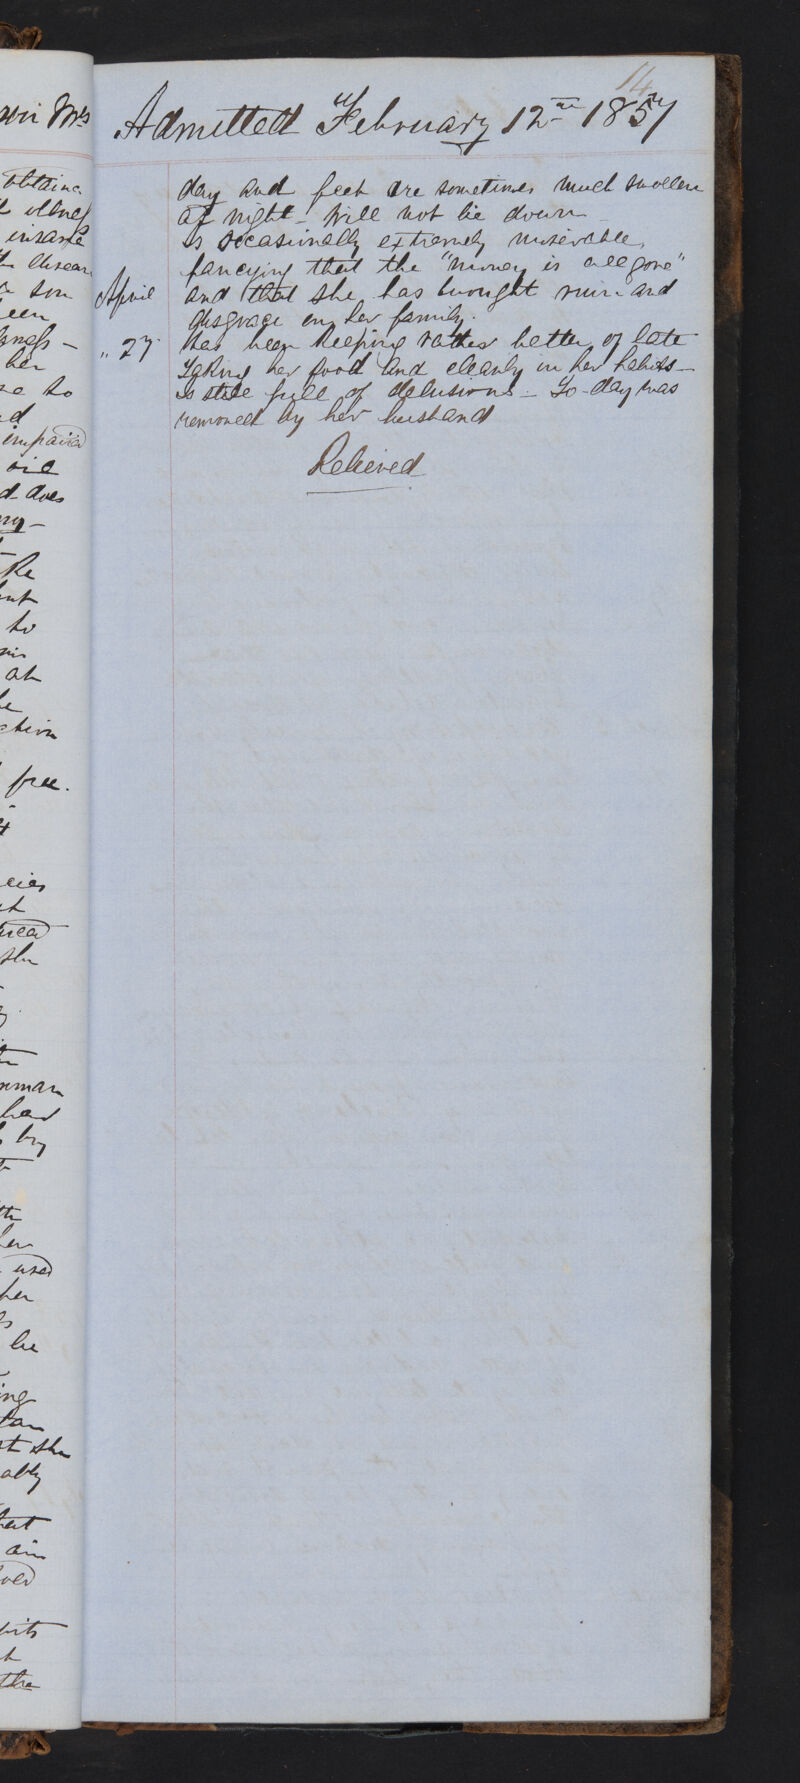 14
Admitted February 12th 1857
day and feet are sometimes much swollen
at night - Will not lie down -
Is occasionally extremely miserable,
fancying that the "money is all gone"
April and that she has brought ruin and
disgrace on her family.
" 27. Has been keeping rather better of late
taking her food and cleanly in her habits -
is still full of delusions - To-day was
removed by her husband
Relieved
Mrs
obtaine
illness
insane
disease
son
een
her
to
impaired
does
but
to
at
ction
free.
she
had
by
her
used
her
be
ing
st she
ably
that